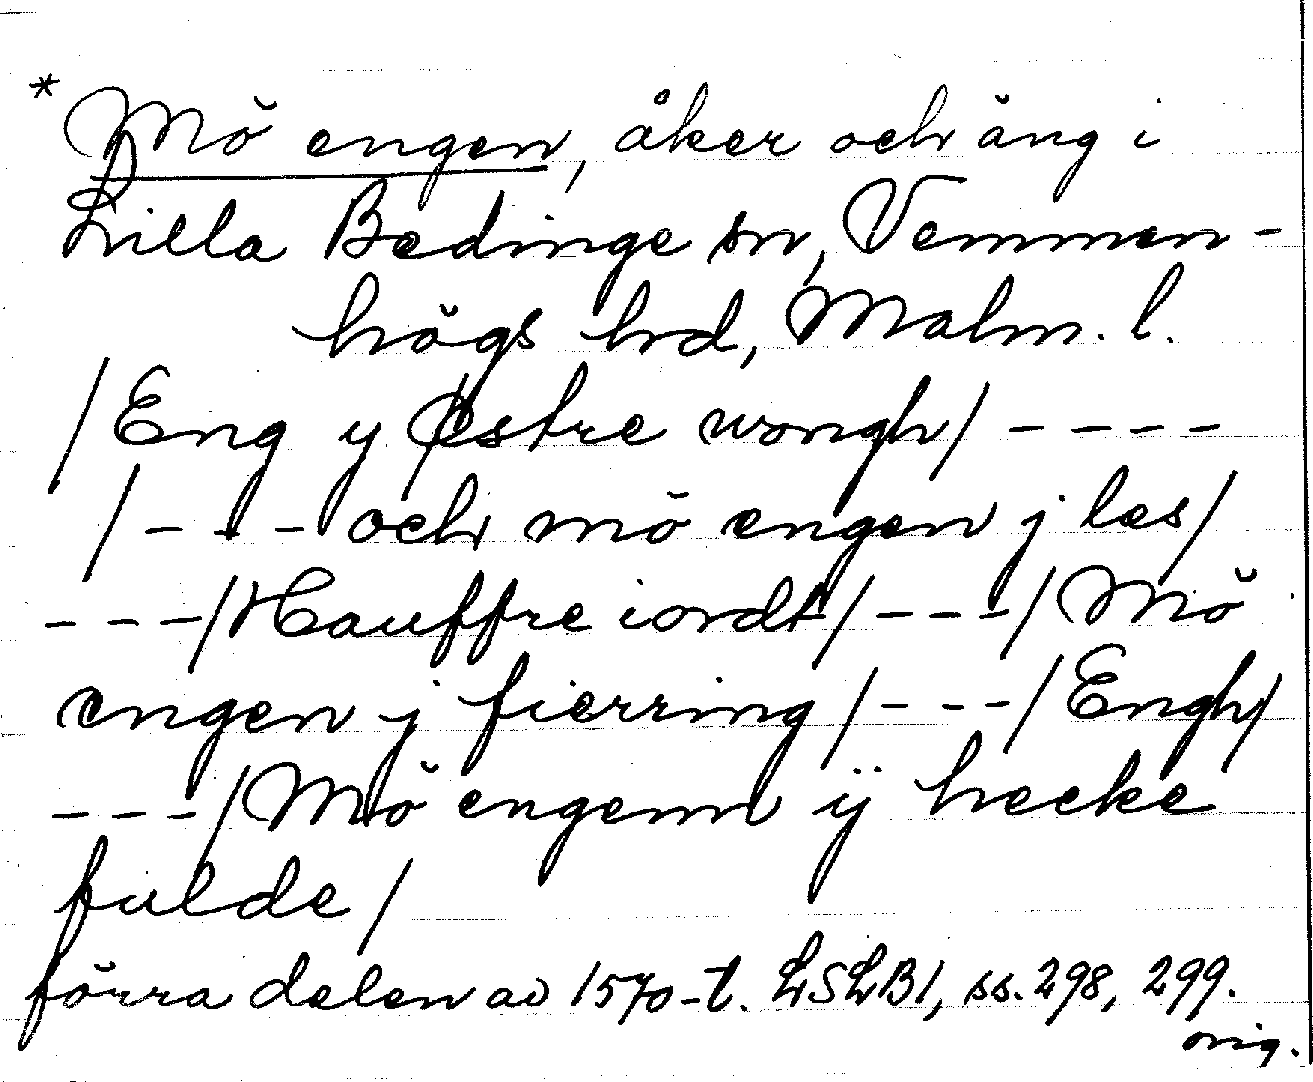 * Mö engen, åker och äng i
Lilla Bedinge sn, Vemmen-
högs hd, Malm. l.
/Eng y Østre wongh/ - - - -
/- - - och mö engen j les/
- - -/Hauffre iordt/- - -/Mö
engen j fierring/- - -/Engh/
- - -/Mö engenn ÿ hecke
fulde/
förra delen av 1570-t. LSLB1, ss. 298, 299.
orig.